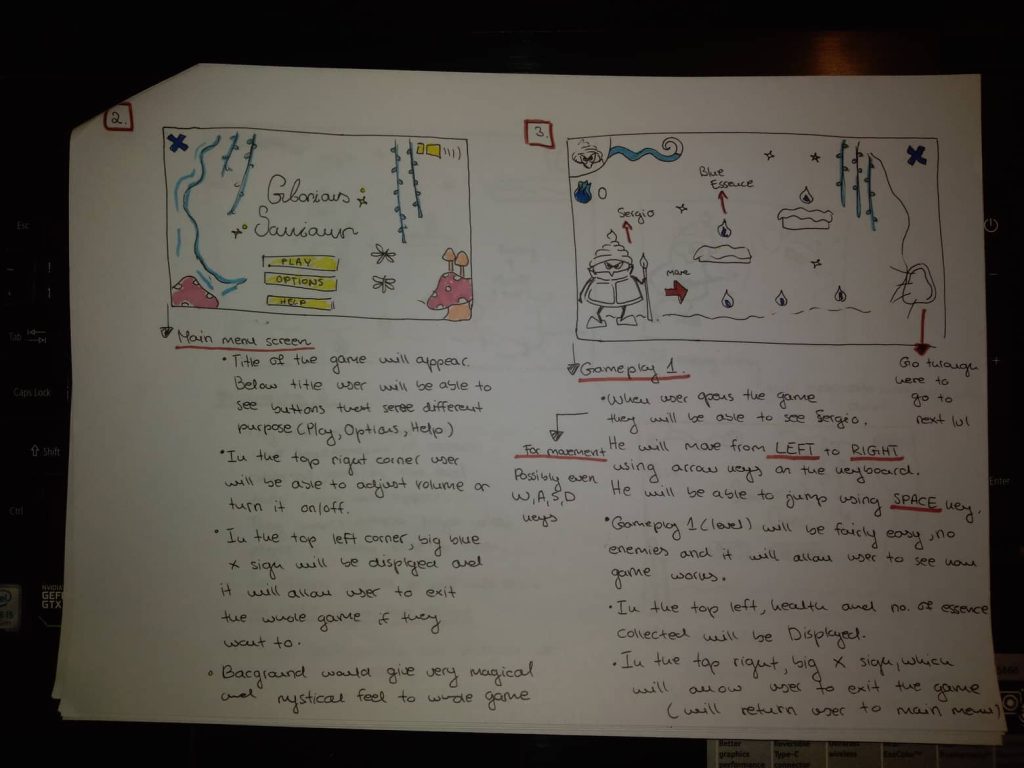 2.
Glorious
PLAY
OPTIONS
HELP
Main menu screen
• Title of the game will appear.
Below title user will be able to
see buttons that serve different
purpose (Play, Options, Help)
• In the top right corner user
will be able to adjust volume or
turn it on/off.
• In the top left corner, big blue
x sign will be displayed and
it will allow user to exit
the whole game if they
want to.
• Bacground would give very magical
and mystical feel to whole game
3.
0
Sergio
Blue
Essence
Move
Go through
here to
go to
next lvl
Gameplay 1.
• When user opens the game
they will be able to see Sergio.
He will move from LEFT to RIGHT
using arrow keys on the keyboard.
He will be able to jump using SPACE key.
For movement
Possibly even
W, A, S, D
keys
• Gameplay 1 (level) will be fairly easy, no
enemies and it will allow user to see how
game works.
• In the top left, health and no. of essence
collected will be Displayed.
• In the top right, big x sign, which
will allow user to exit the game
(will return user to main menu)
Esc
Tab
Caps Lock
Shift
Ctrl
Enter
intel
NVIDIA
GEF
GTX
Better
graphics
performance
Reversible
Type-C
connector
wireless